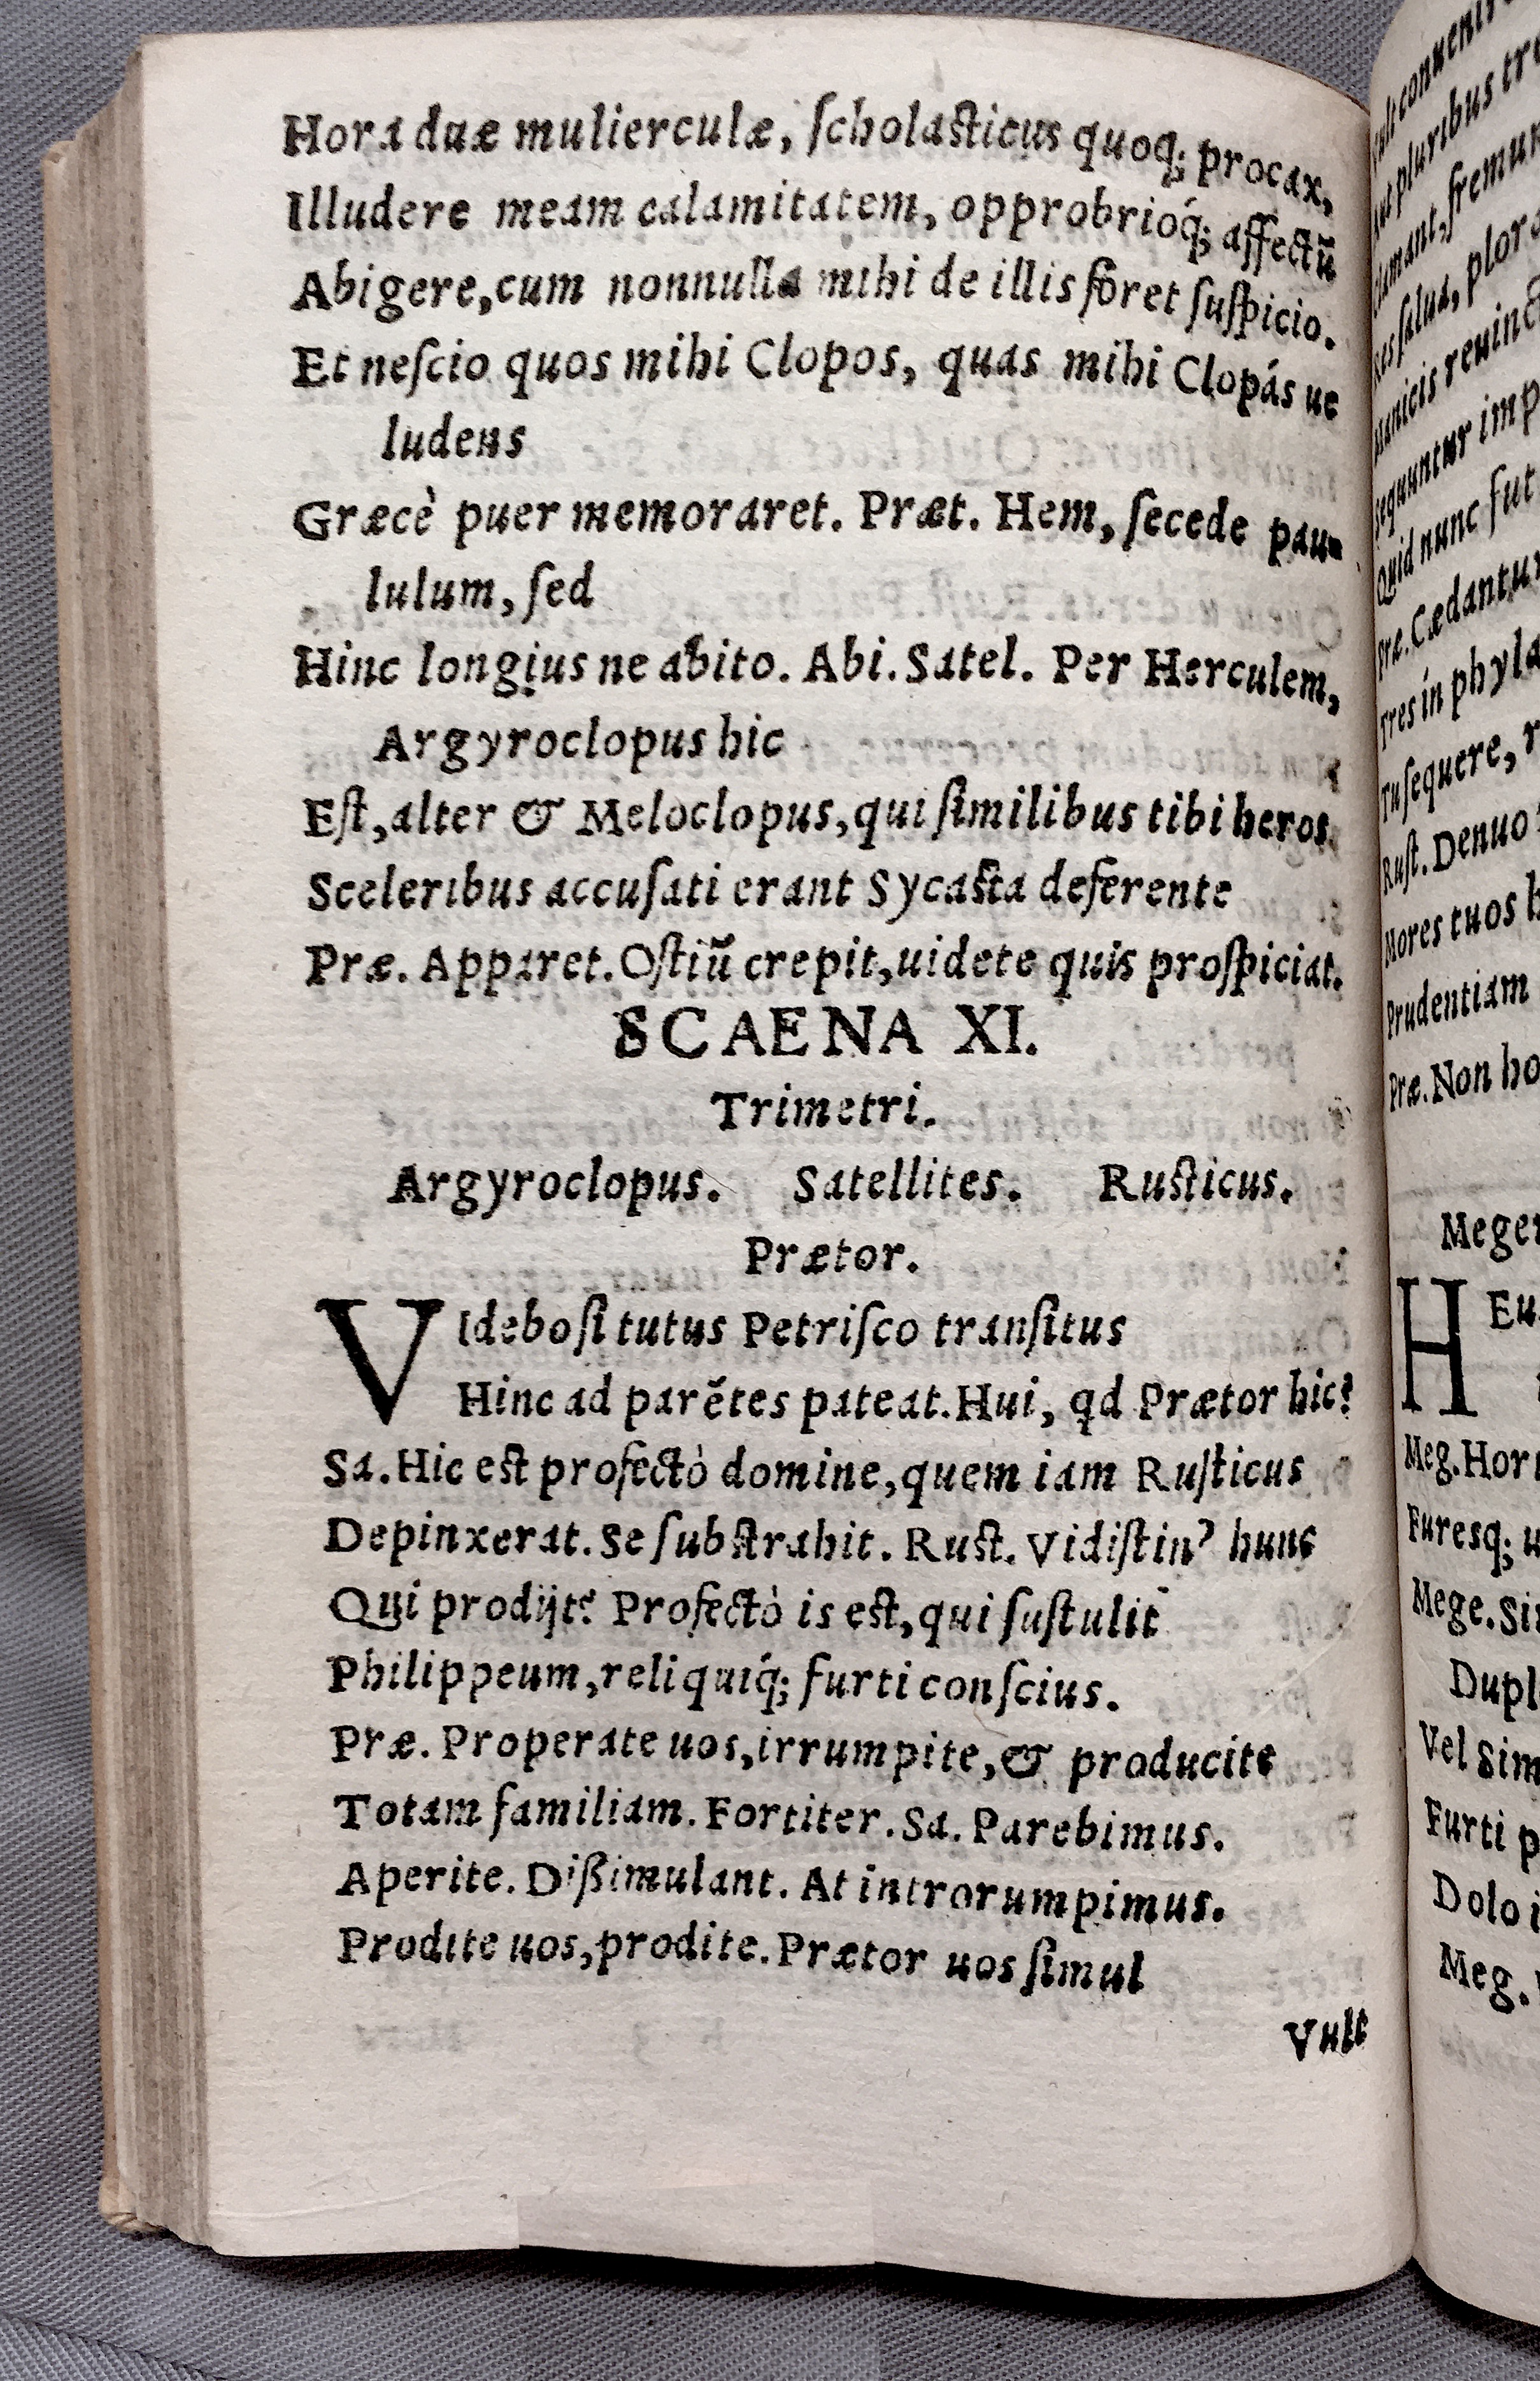 Hora duæ mulierculæ, ſcholaſticus quoq; procax,
Illudere meam calamitatem, opprobrióq; affectũ
Abigere, cum nonnulla mihi de illis foret ſuſpicio.
Et neſcio quos mihi Clopos, quas mihi Clopás ue
ludens
Græcè puer memoraret. Præt. Hem, ſecede pau-
lulum, ſed
Hinc longius ne abito. Abi. Satel. Per Herculem,
Argyroclopus hic
Eſt, alter & Meloclopus, qui ſimilibus tibi heros
Sceleribus accuſati erant Sycaſta deferente
Præ. Apparet. Oſtiũ crepit, uidete quis proſpiciat.
SCAENA XI.
Trimetri.
Argyroclopus. Satellites. Ruſticus.
Prætor.
VIdebo ſi tutus Petriſco tranſitus
Hinc ad parẽtes pateat. Hui, qd Prætor hic?
Sa. Hic eſt profectò domine, quem iam Ruſticus
Depinxerat. Se ſubſtrahit. Ruſt. Vidiſtin' hunc
Qui prodijt? Profectò is eſt, qui ſuſtulit
Philippeum, reliquiq́; furti conſcius.
Præ. Properate uos, irrumpite, & producite
Totam familiam. Fortiter. Sa. Parebimus.
Aperite. Dißimulant. At introrumpimus.
Prodite uos, prodite. Prætor uos ſimul
Vult
pluribus
ſalua, plora
Manicis
Quid nunc
Præ. Cædantur
Tres in
Tu ſequere,
Ruſt. Denuo
Mores tuos
Prudentiam
Præ. Non
HEu
Meg.
Furesq;
Mege.
Vel
Furti
Dolo
Meg.